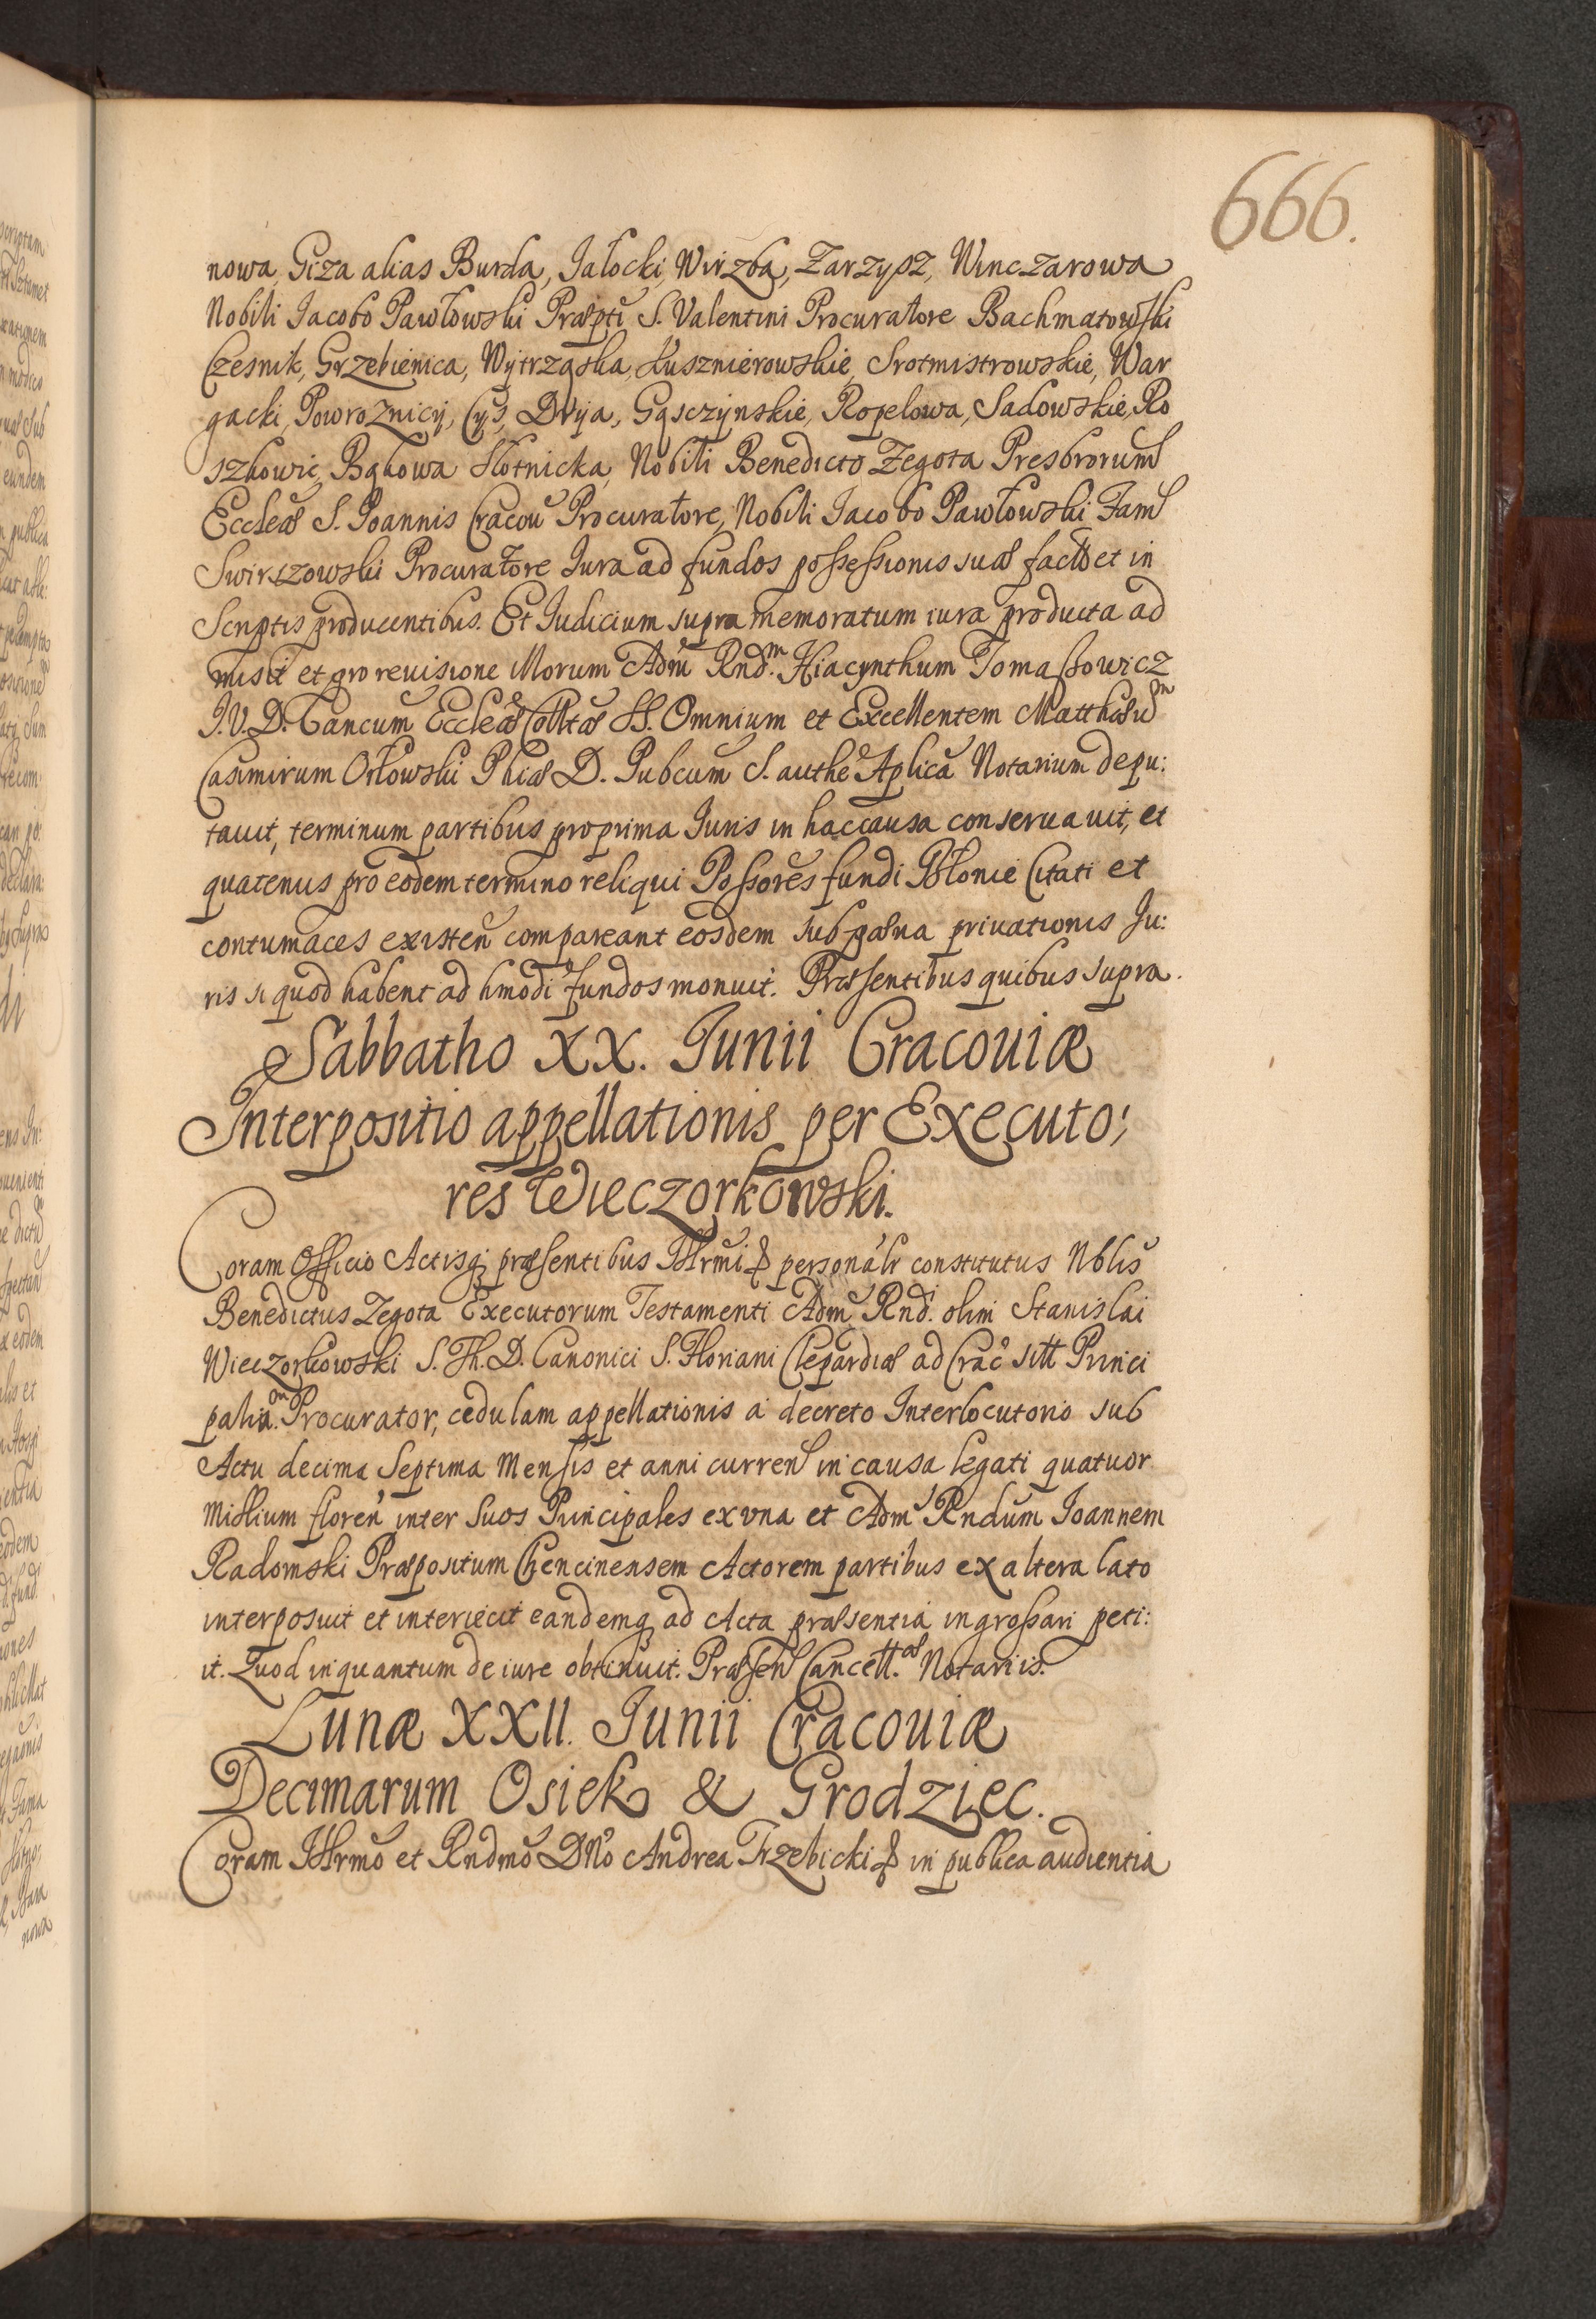 666.
nowa, Giza alias Burda, Jałocki, Wirzba, Zarzysz, Winczarowa
Nobili Jacobo Pawłowski Præpti S. Valentini Procuratore Bachmatowski
Czesnik, Grzebienica, Wytrząska, Kusznierowskie, Srotmistrowskie, War
gacki, Powroznicy, Cys, Dyja, Gąsczynskie, Ropelowa, Sadowskie, Ro
szkowic, Bąkowa Słotnicka, Nobili Benedicto Zegota Presbrorum
Eccleæ S. Joannis Cracoū Procuratore, Nobili Jacobo Pawłowski Fam
Swirszowski Procuratore Jura ad fundos possessionis suæ facto et in
Scriptis producentibus. Et Judicium supra memoratum iura producta ad
misit et pro reuisione illorum Adm̃ Rnd.m Hiacynthum Tomassowicz
J.V.D. Cancum Eccleæ Colltæ SS. Omnium et Excellentem Matthæum
Casimirum Orłowski Phiæ D. Pubcum S. authe Aplica Notarium depu:
tauit, terminum partibus pro prima Juris in hac causa conseruauit, et
quatenus pro eodem termino reliqui Possores fundi Błonie Citati et
contumaces existeñ compareant eosdem sub pæna priuationis Ju:
ris si quod habent ad hmodi fundos monuit. Præsentibus quibus supra.
Sabbatho XX. Junii Cracouiæ
Interpositio appellationis per Executo:
res Wieczorkowski.
Coram Officio Actisq; præsentibus Illrmi & personalr constitutus Nblis
Benedictus Zegota Executorum Testamenti Adm̃ Rnd.i olim Stanislai
Wieczorkowski S. Th. D. Canonici S. Floriani Clepardiæ ad Crac̃ sitt Princi
palium Procurator, cedulam appellationis a decreto Interlocutorio sub
Actu decima Septima Mensis et anni curren in causa legati quatuor
Millium floreñ inter suos Principales ex vna et Adm̃ Rndum Joannem
Radomski Præpositum Chencinensem Actorem partibus ex altera lato
interposuit et interiecit eandemq; ad Acta præsentia ingrossari peti:
it. Quod inquantum de iure obtinuit. Præsen Cancell.æ Notariis.
Lunæ XXII. Junii Cracouiæ
Decimarum Osiek & Grodziec.
Coram Illrmo et Rndmo Dno Andrea Trzebicki & in publica audientia